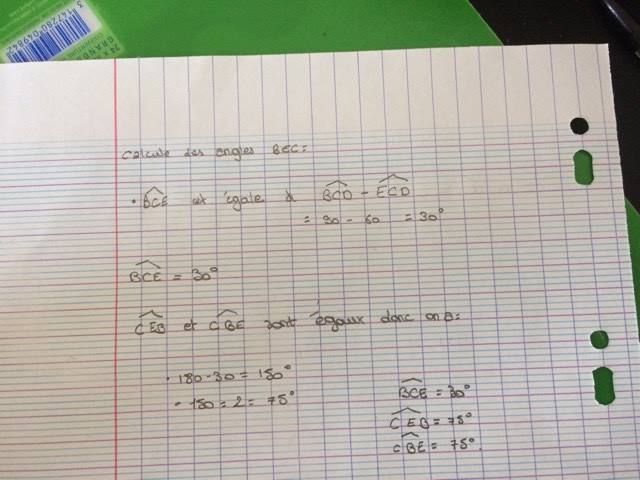 3 147280 049842
GRANDS
calcule des angles BEC:
• BCE est égale à BCD - ECD
= 90 - 60 = 30°
BCE = 30°
CEB et CBE sont égaux donc on a:
• 180 - 30 = 150°
- 150 ÷ 2 = 75°
BCE = 30°
CEB = 75°
CBE = 75°.